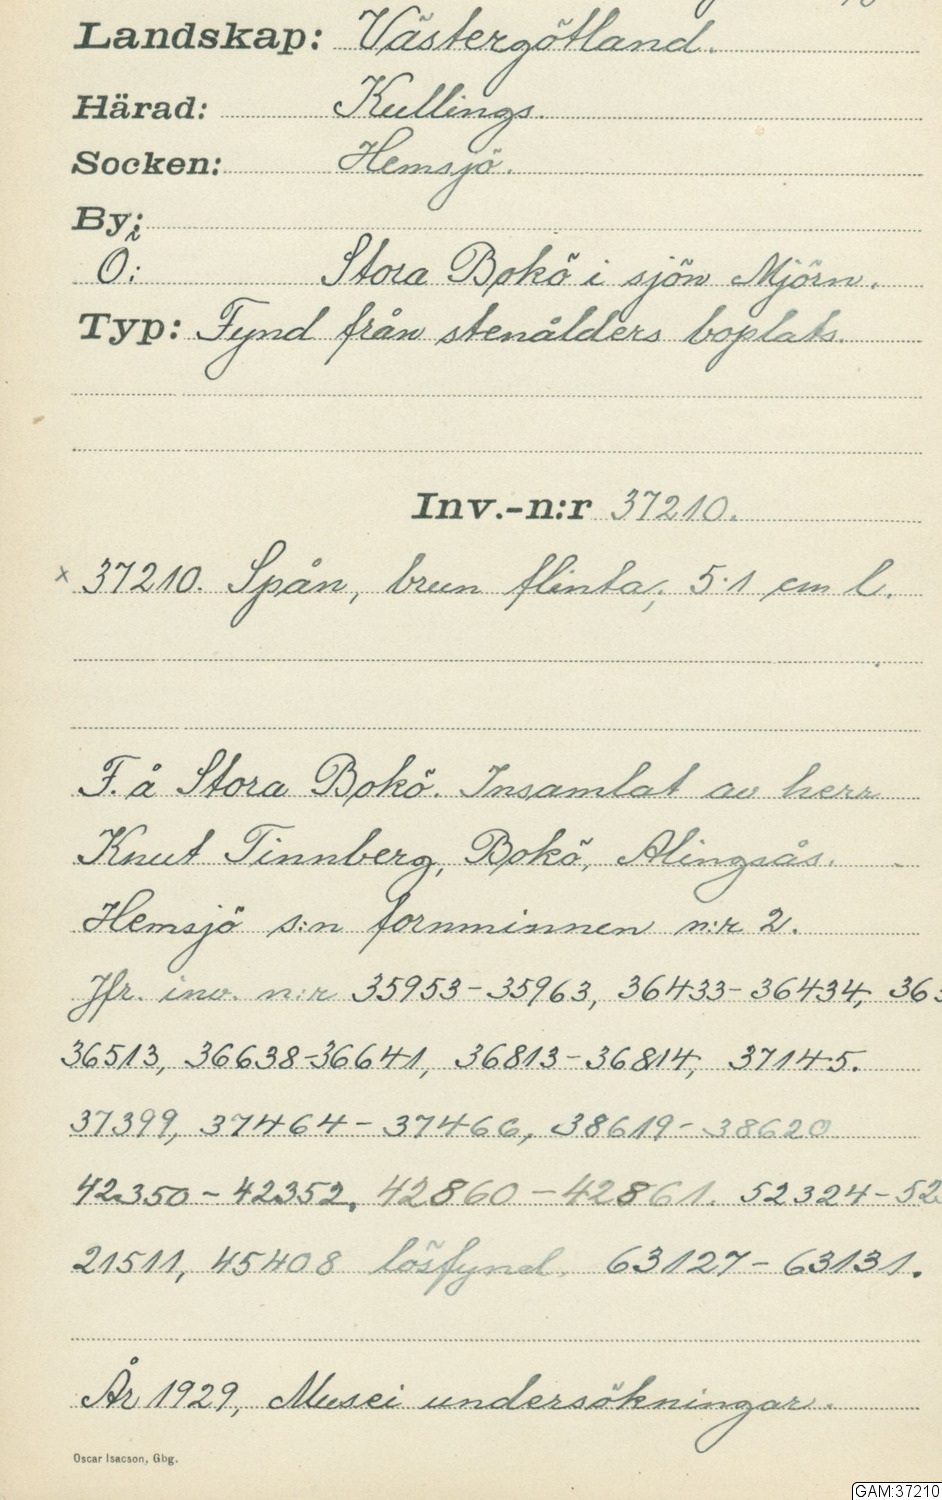 Landskap: Västergötland.
Härad: Kullings.
Socken: Hemsjö.
By:
Ö: Stora Bokö i sjön Mjörn.
Typ: Fynd från stenålders boplats.
Inv.-n:r 37210.
x 37210. Spån, brun flinta; 5·1 cm l.
F. å Stora Bokö. Insamlat av herr
Knut Tinnberg, Bokö, Alingsås.
Hemsjö s:n fornminnen n:r 2.
Jfr. inv. n:r 35953-35963, 36433-36434,
36513, 36638-36641, 36813-36814, 37145.
37399, 37464-37466, 38619-38620
42350-42352, 42860-42861. 52324-
21511, 45408 lösfynd. 63127-63131.
År 1929, Musei undersökningar.
Oscar Isacson, Gbg.
GAM:37210